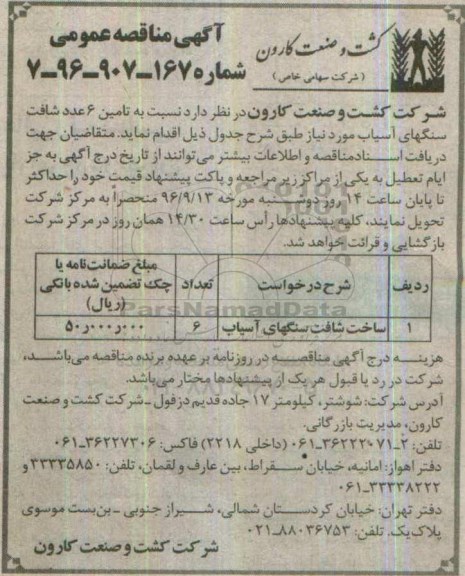 آگهی مناقصه عمومی
شماره ۱۶۷-۹۰۷-۹۶-۷
کشت و صنعت کارون
(شرکت سهامی خاص)
شرکت کشت و صنعت کارون در نظر دارد نسبت به تامین ۶ عدد شافت
سنگهای آسیاب مورد نیاز طبق شرح جدول ذیل اقدام نماید. متقاضیان جهت
دریافت اسنادمناقصه و اطلاعات بیشتر می‌توانند از تاریخ درج آگهی به جز
ایام تعطیل به یکی از مراکز زیر مراجعه و پاکت پیشنهاد قیمت خود را حداکثر
تا پایان ساعت ۱۴ روز دوشنبه مورخه ۹۶/۹/۱۳ منحصراً به مرکز شرکت
تحویل نمایند، کلیه پیشنهادها رأس ساعت ۱۴/۳۰ همان روز در مرکز شرکت
بازگشایی و قرائت خواهد شد.
ردیف شرح درخواست تعداد مبلغ ضمانت‌نامه یا
چک تضمین شده بانکی
(ریال)
۱ ساخت شافت سنگهای آسیاب ۶ ۵۰ر۰۰۰ر۰۰۰
ParsNamadData
هزینه درج آگهی مناقصه در روزنامه بر عهده برنده مناقصه می‌باشد،
شرکت در رد یا قبول هر یک از پیشنهادها مختار می‌باشد.
آدرس شرکت: شوشتر، کیلومتر ۱۷ جاده قدیم دزفول - شرکت کشت و صنعت
کارون، مدیریت بازرگانی.
تلفن: ۲-۳۶۲۲۲۰۷۱-۰۶۱ (داخلی ۲۲۱۸) فاکس: ۳۶۲۲۷۳۰۶-۰۶۱
دفتر اهواز: امانیه، خیابان سقراط، بین عارف و لقمان، تلفن: ۳۳۳۳۵۸۵۰ و
۳۳۳۳۸۲۲۲-۰۶۱
دفتر تهران: خیابان کردستان شمالی، شیراز جنوبی - بن‌بست موسوی
پلاک یک. تلفن: ۸۸۰۳۶۷۵۳-۰۲۱
شرکت کشت و صنعت کارون